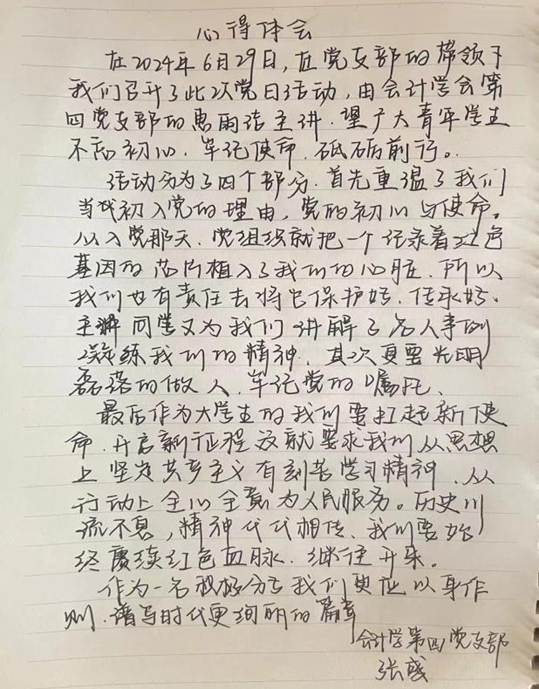 心得体会
在2024年6月29日,在党支部的带领下
我们召开了此次党日活动,由会计学会第
四党支部的惠雨洁主讲.望广大青年学生
不忘初心.牢记使命.砥砺前行。
活动分为了四个部分.首先重温了我们
当初初入党的理由,党的初心与使命。
从入党那天.党组织就把一个记录着红色
基因的芯片植入了我们的心脏.所以
我们也有责任去将它保护好.传承好.
主讲同学又为我们讲解了名人事例
凝练我们的精神.其次更要光明
磊落的做人.牢记党的嘱托.
最后作为大学生的我们要扛起新使
命.开启新征程这就要求我们从思想
上坚定共产主义有刻苦学习精神.从
行动上全心全意为人民服务。历史川
流不息,精神代代相传.我们要始
终赓续红色血脉.继往开来.
作为一名积极分子我们更应以身作
则.谱写时代更绚丽的篇章
会计学第四党支部
张